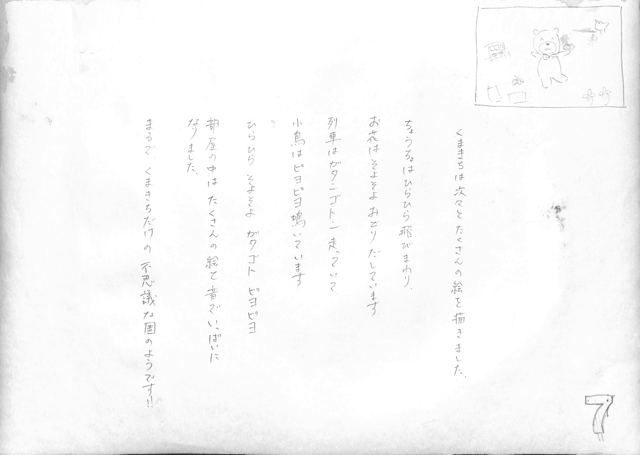 くまきちは次々とたくさんの絵を描きました。
ちょうちょはひらひら飛びまわり、
お花はそよそよおどりだしています
列車はガタンゴトン走っていて
小鳥はピヨピヨ鳴いています
ひらひら そよそよ ガタゴト ピヨピヨ
部屋の中はたくさんの絵と音でいっぱいに
なりました。
まるで くまきちだけの 不思議な国のようです!!
7